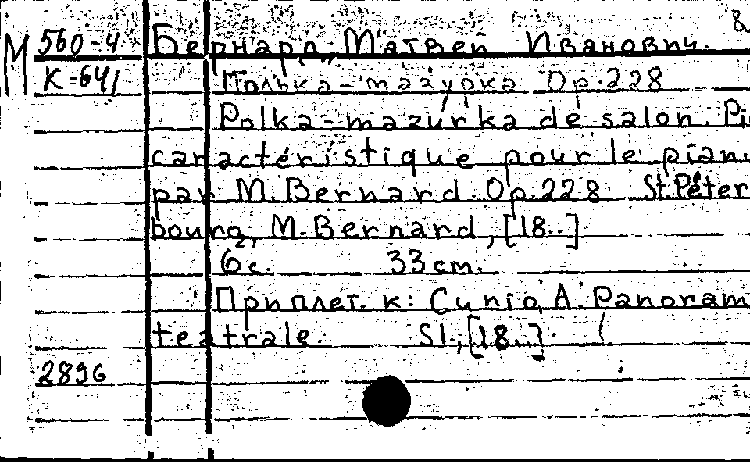 М 560-4 Бернард, Матвей Иванович. 8
К-641 Полька-мазурка Op.228
Polka-mazurka de salon. Pi
caractéristique pour le pian
par M.Bernard. Op.228 St.Péter
bourg, M.Bernard, [18..]
6с. 33 cm.
Приплет. к: Cunio, A. Panoram
teatrale. S.l., [18..]
2896